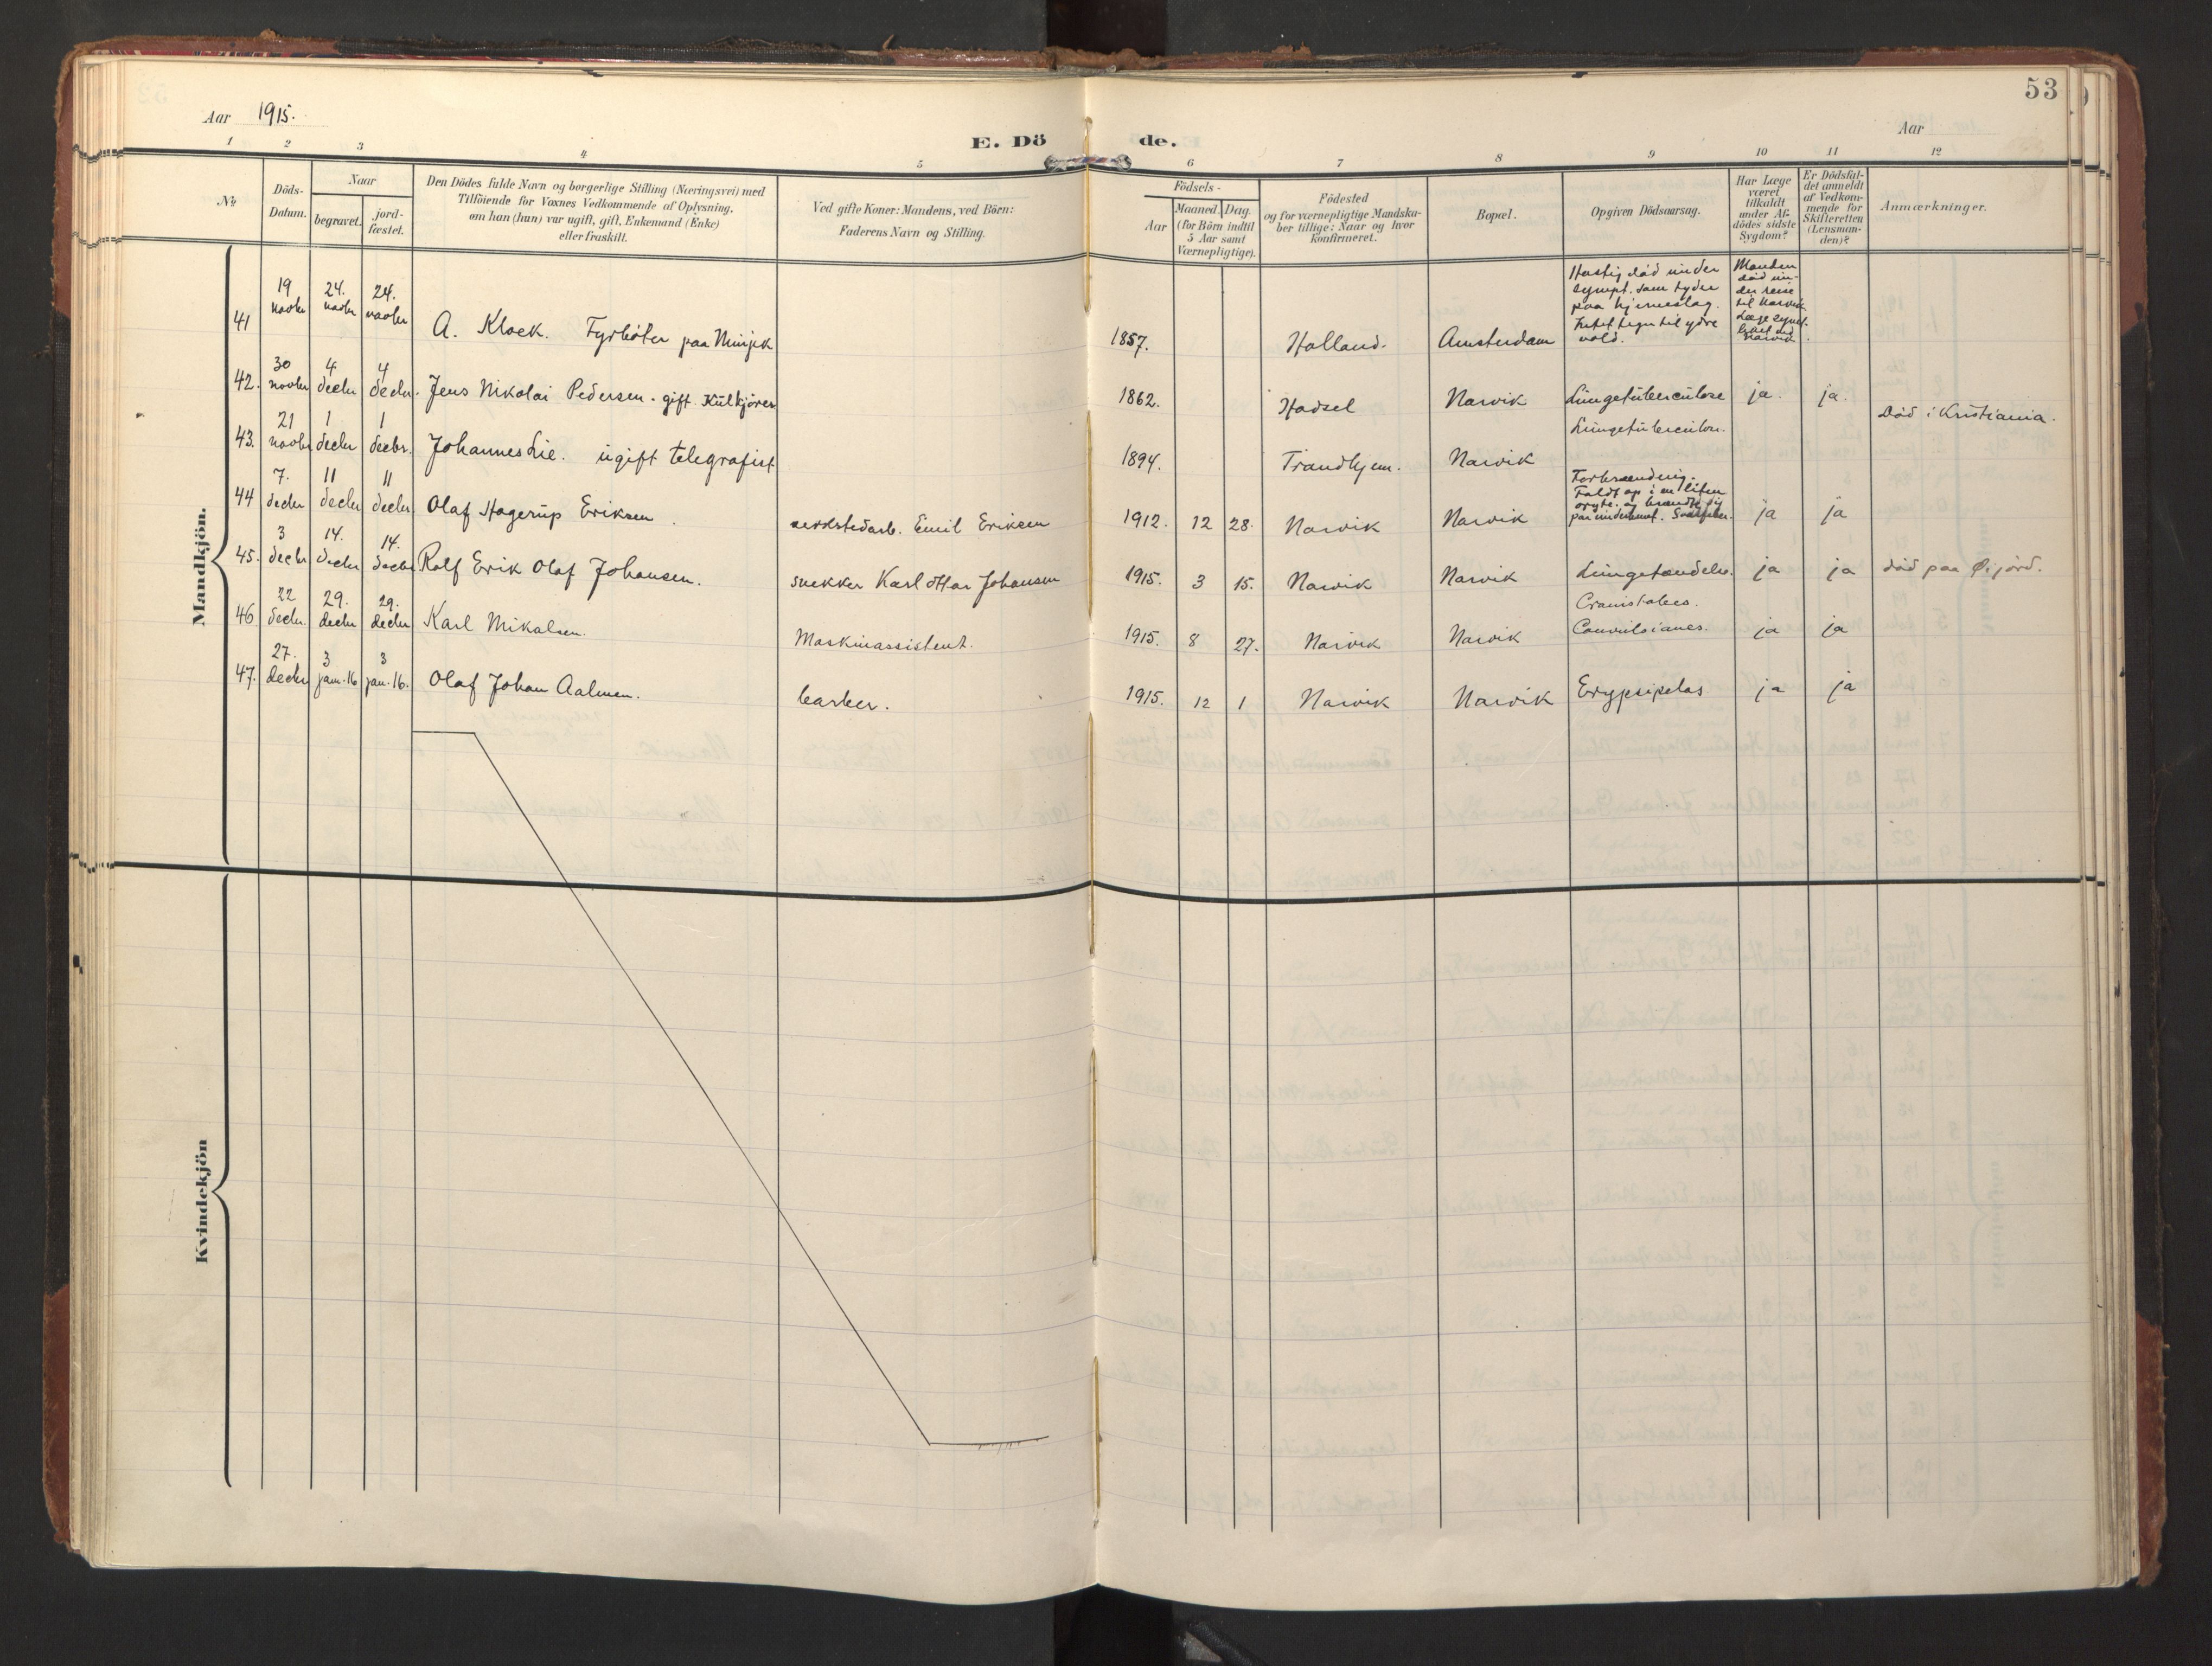 53
Aar 1915.
Aar
E. Dö de.
1 2 3 4 5 6 7 8 9 10 11 12
No
Döds-
Datum.
Naar
begravet.
jord-
fæstet.
Den Dödes fulde Navn og borgerlige Stilling (Næringsvei) med
Tilföiende for Voxnes Vedkommende af Oplysning,
om han (hun) var ugift, gift, Enkemand (Enke)
eller fraskilt.
Ved gifte Koner: Mandens, ved Börn:
Faderens Navn og Stilling.
Födsels-
Aar
Maaned. Dag.
(for Börn indtil
5 Aar samt
Værnepligtige).
Födested
og for værnepligtige Mandska-
ber tillige: Naar og hvor
konfirmeret.
Bopæl.
Opgiven Dödsaarsag.
Har Læge
været
tilkaldt
under Af-
dödes sidste
Sygdom?
Er Dödsfal-
det anmeldt
af Vedkom-
mende for
Skifteretten
(Lensman-
den)?
Anmærkninger.
Mandkjön.
41
19
novbr
24.
novbr
24.
novbr
A. Kloek. Fyrböter paa
1857.
Holland.
Amsterdam
Hastig död under
sympt. som tyder
paa hjerneslag.
Intet tegn til ydre
vold.
Manden
död un-
der reise
til Narvik
Læge
Narvik
42.
30
novbr
4
decbr
4
decbr.
Jens Nikolai Pedersen. gift. Kulkjörer
1862.
Hadsel
Narvik
Lungetuberculose
ja.
ja.
43.
21
novbr
1
decbr
1
decbr.
Johannes Lie. ugift telegrafist
1894.
Trondhjem.
Narvik
Lungetuberculos.
Död i Kristiania.
44
7.
decbr
11
decbr
11
decbr
Olaf Hagerup Eriksen
verkstedarb. Emil Eriksen
1912. 12 28.
Narvik
Narvik
Forbrænding.
Faldt op i en liten
gryte og brændte sig
paa underkrop.
ja
ja
45.
3
decbr
14.
decbr
14.
decbr
Rolf Erik Olaf Johansen.
snekker Karl Johansen
1915. 3 15.
Narvik
Narvik
Lungetændelse.
ja
ja
död paa Öijord.
46
22
decbr.
29.
decbr
29.
decbr
Karl Mikalsen.
Maskinassistent.
1915. 8 27.
Narvik
Narvik
Craniotabes.
Convulsiones.
ja
ja
47.
27.
decbr
3
jan. 16
3
jan. 16.
Olaf Johan Aalmen.
barber.
1915. 12 1
Narvik
Narvik
Erypsipelas
ja
ja
Kvindekjön